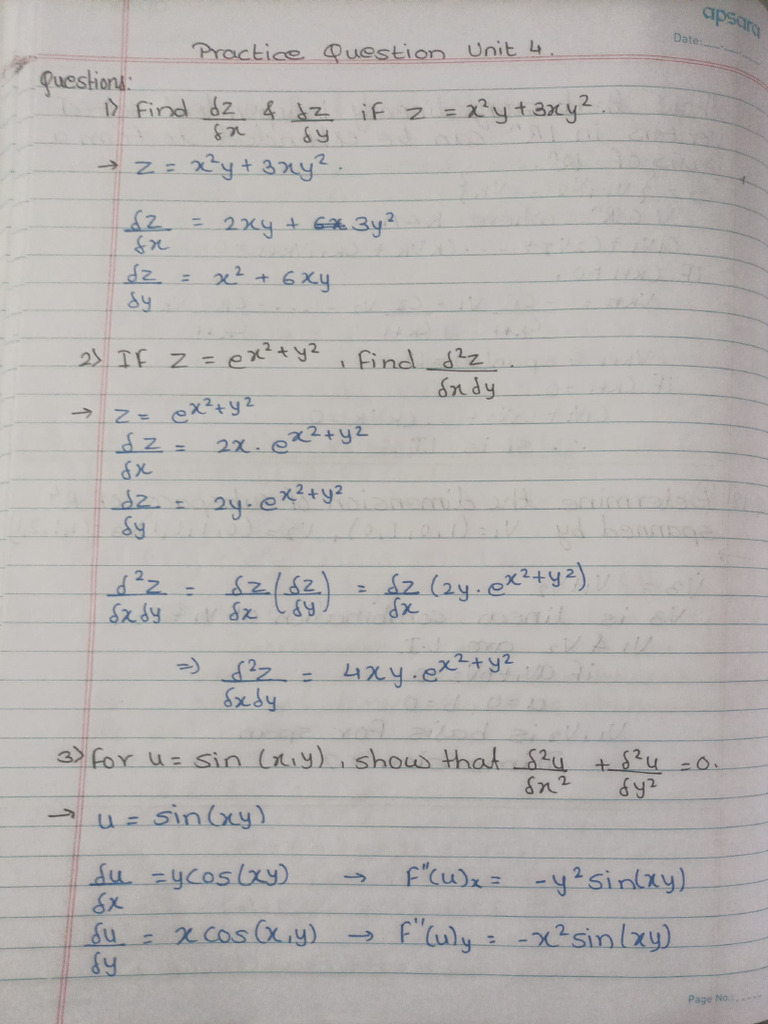 apsara
Date:
Practice Question Unit 4.
Questions:
1) Find δz/δx & δz/δy if z = x²y + 3xy².
→ z = x²y + 3xy².
δz/δx = 2xy + 3y²
δz/δy = x² + 6xy
2) If z = e^(x²+y²), find δ²z/δxδy.
→ z = e^(x²+y²)
δz/δx = 2x · e^(x²+y²)
δz/δy = 2y · e^(x²+y²)
δ²z/δxδy = δz/δx (δz/δy) = δz/δx (2y · e^(x²+y²))
⇒ δ²z/δxδy = 4xy · e^(x²+y²)
3) For u = sin (x,y), show that δ²u/δx² + δ²u/δy² = 0.
→ u = sin(xy)
δu/δx = ycos(xy) → F"(u)x = -y²sin(xy)
δu/δy = xcos(x,y) → F"(u)y = -x²sin(xy)
Page No.: